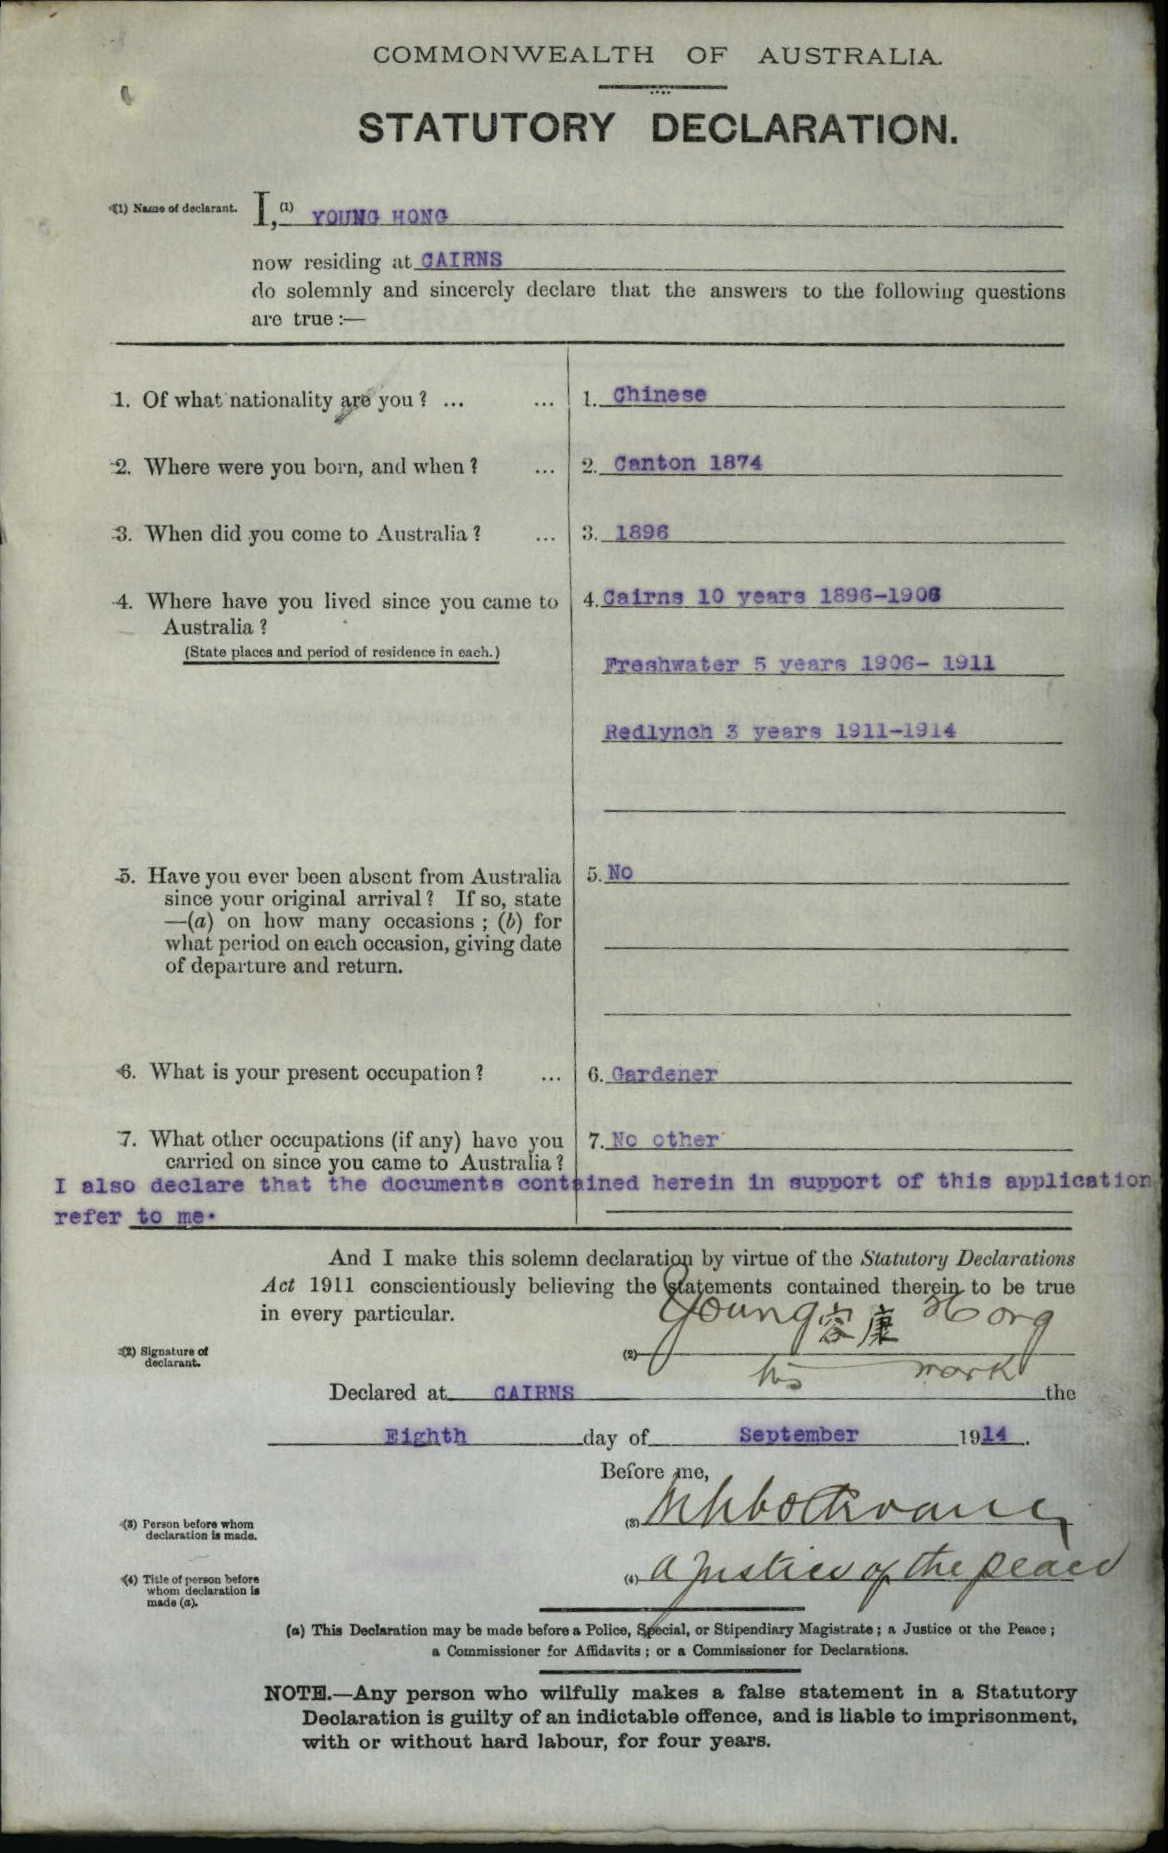 COMMONWEALTH OF AUSTRALIA.
STATUTORY DECLARATION.
(1) Name of declarant. I, (1) YOUNG HONG
now residing at CAIRNS
do solemnly and sincerely declare that the answers to the following questions
are true :—
1. Of what nationality are you ? ... ... 1. Chinese
2. Where were you born, and when ? ... 2. Canton 1874
3. When did you come to Australia ? ... 3. 1896
4. Where have you lived since you came to 4. Cairns 10 years 1896-1906
Australia ?
(State places and period of residence in each.)
Freshwater 5 years 1906- 1911
Redlynch 3 years 1911-1914
5. Have you ever been absent from Australia 5. No
since your original arrival ? If so, state
—(a) on how many occasions ; (b) for
what period on each occasion, giving date
of departure and return.
6. What is your present occupation ? ... 6. Gardener
7. What other occupations (if any) have you 7. No other
carried on since you came to Australia ?
I also declare that the documents contained herein in support of this application
refer to me.
And I make this solemn declaration by virtue of the Statutory Declarations
Act 1911 conscientiously believing the statements contained therein to be true
in every particular.
Young 容康 Hong
(2) Signature of
declarant.
(2)
his mark
Declared at CAIRNS the
Eighth day of September 1914.
Before me,
(3) Person before whom
declaration is made.
(3)
(4) Title of person before
whom declaration is
made (a).
(4) a Justice of the peace
(a) This Declaration may be made before a Police, Special, or Stipendiary Magistrate ; a Justice of the Peace ;
a Commissioner for Affidavits ; or a Commissioner for Declarations.
NOTE.—Any person who wilfully makes a false statement in a Statutory
Declaration is guilty of an indictable offence, and is liable to imprisonment,
with or without hard labour, for four years.